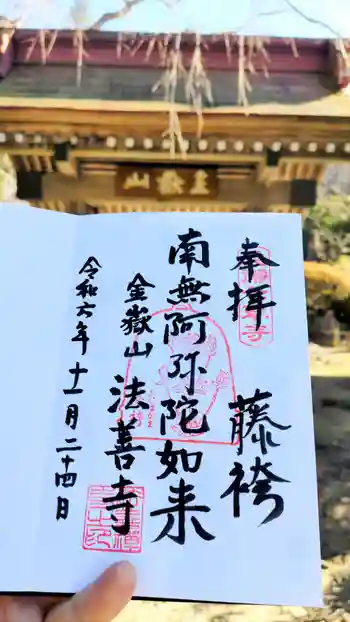 奉拝
藤袴
南無阿弥陀如来
金嶽山
法善寺
令和六年十一月二十四日